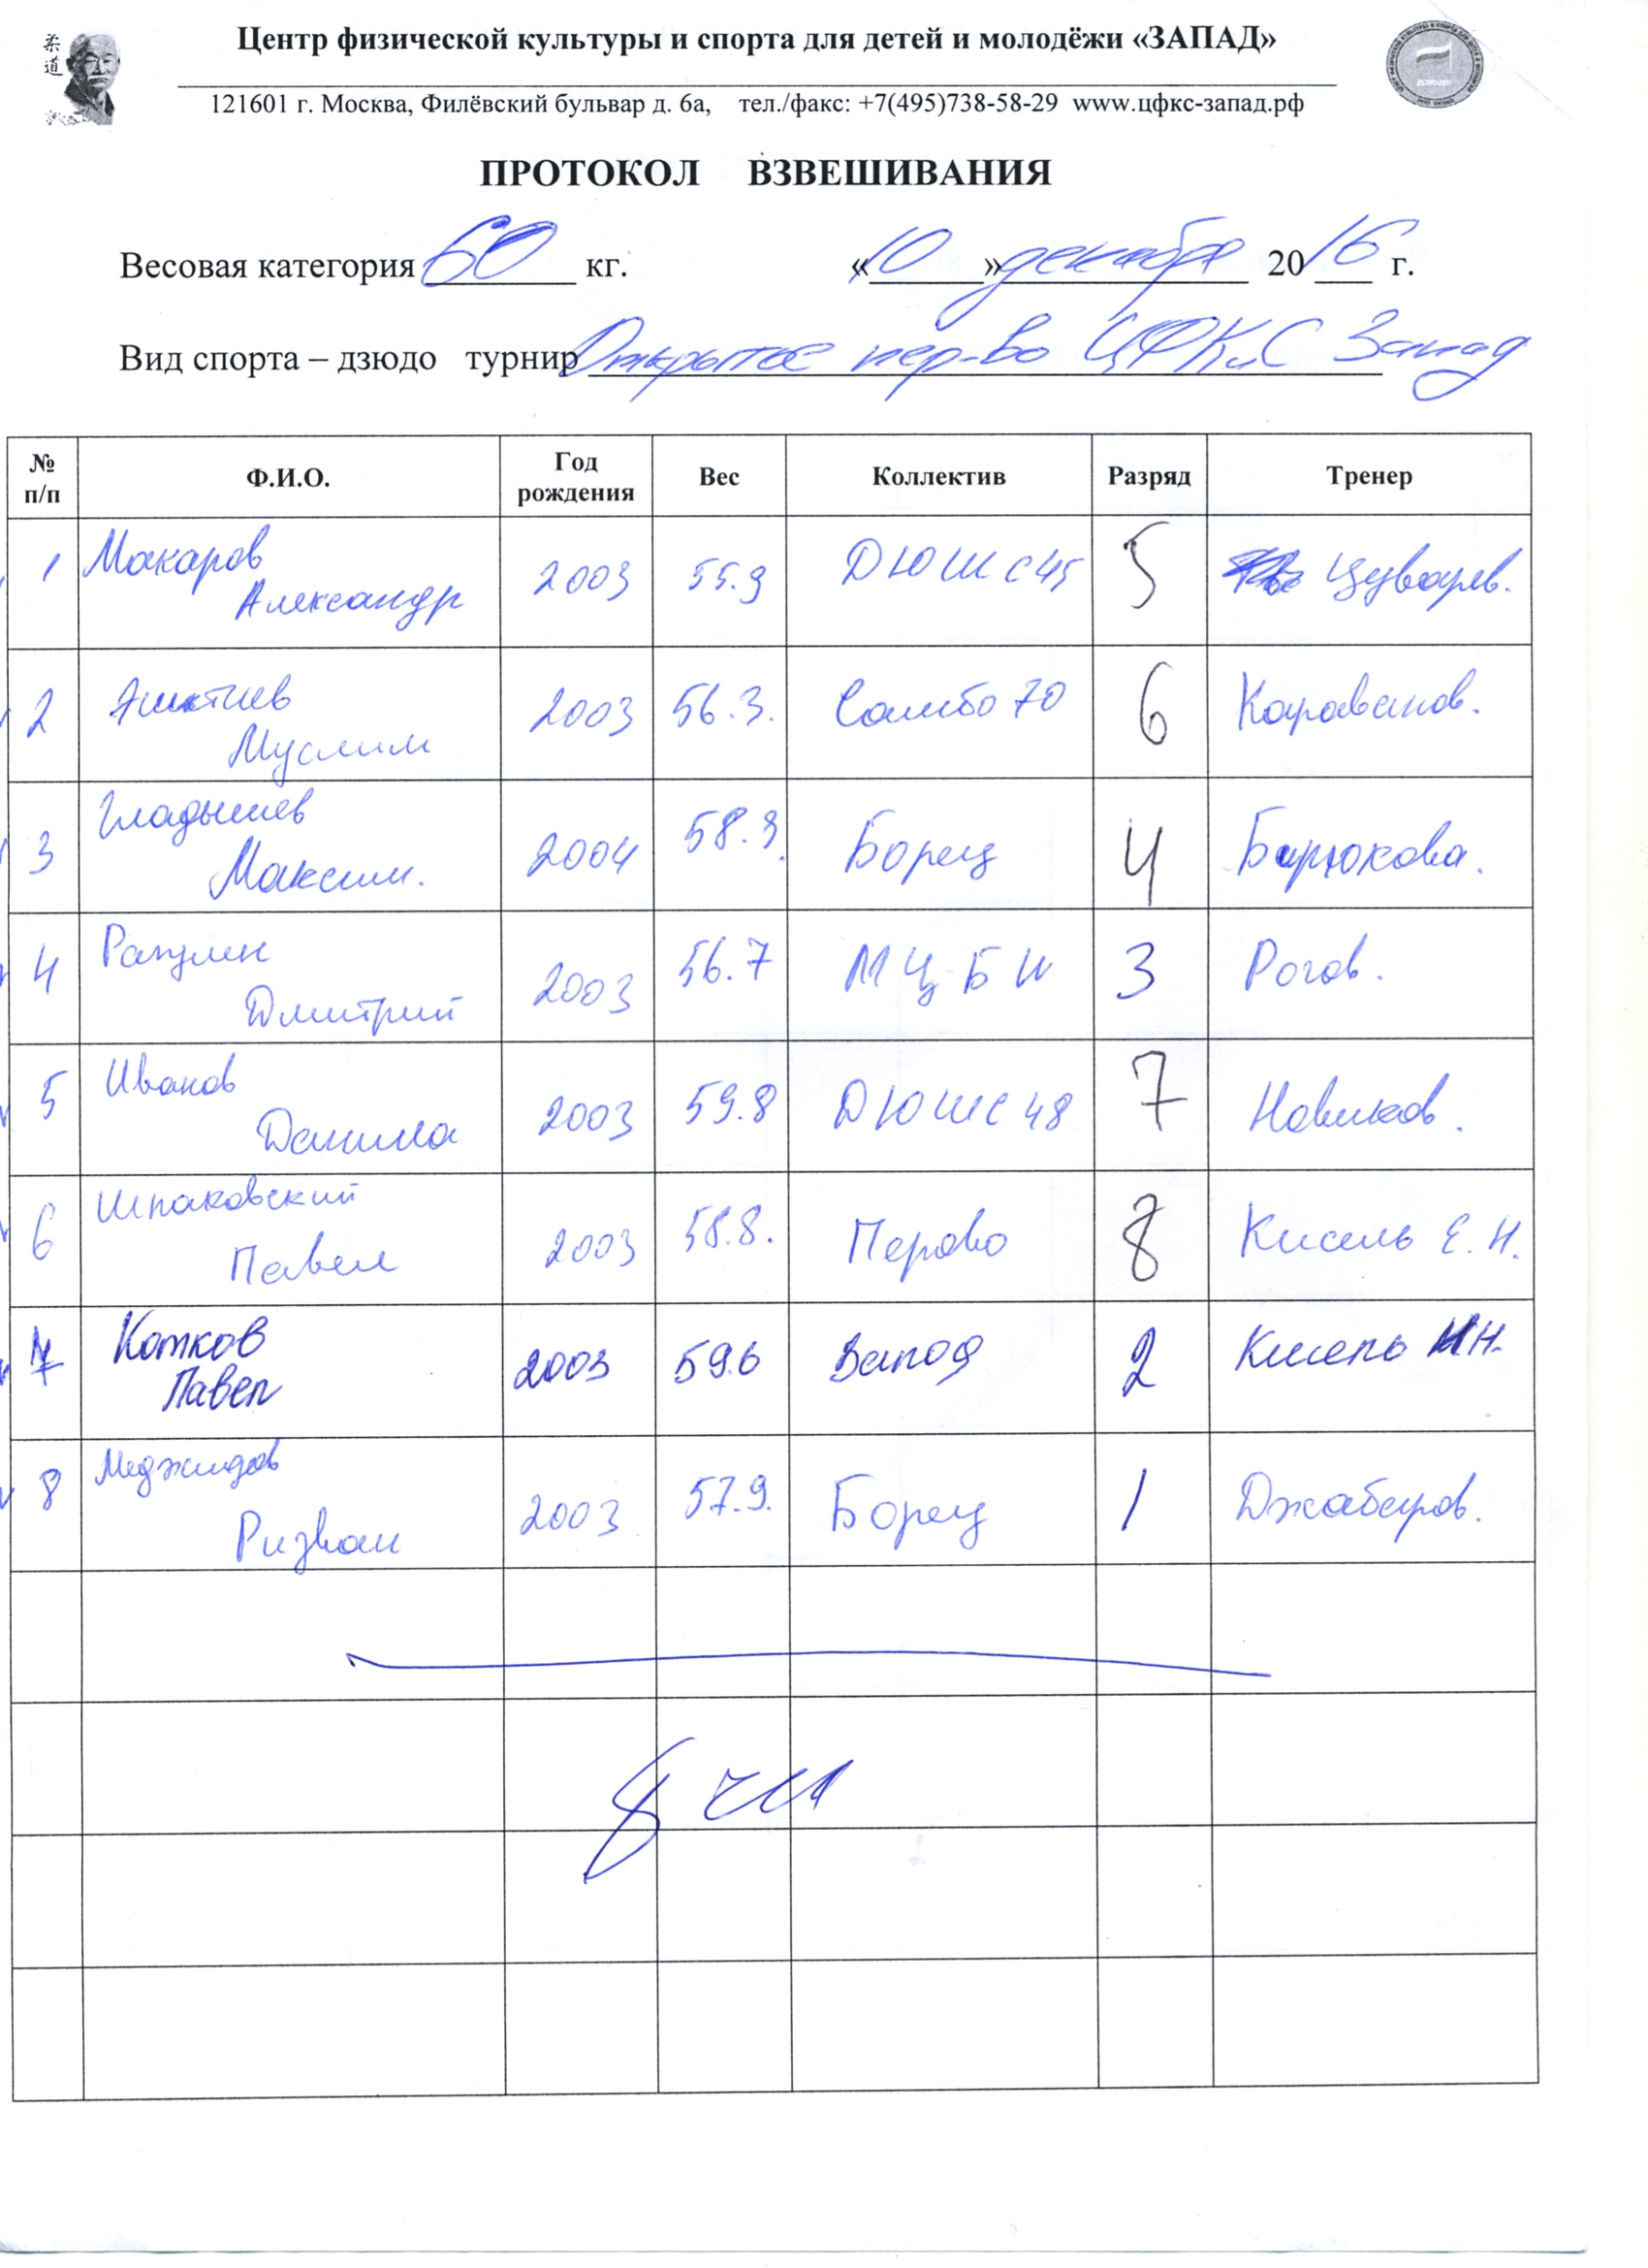 Центр физической культуры и спорта для детей и молодёжи «ЗАПАД»
121601 г. Москва, Филёвский бульвар д. 6а, тел./факс: +7(495)738-58-29 www.цфкс-запад.рф
ПРОТОКОЛ ВЗВЕШИВАНИЯ
Весовая категория 60 кг. «10» декабря 2016 г.
Вид спорта – дзюдо турнир Открытое пер-во ЦФКиС Запад
№ п/п Ф.И.О. Год рождения Вес Коллектив Разряд Тренер
1 Макаров Александр 2003 55.9 ДЮШС 45 5
2 Муслим 2003 56.3. Самбо 70 6 Караванов.
3 Гладышев Максим. 2004 58.9. Борец 4 Бирюкова.
4 Дмитрий 2003 56.7 МЦБИ 3 Рогов.
5 Иванов Данила 2003 59.8 ДЮШС 48 7 Новиков.
6 Шпаковский Павел 2003 58.8. Перово 8 Кисель Е.Н.
7 Котков Павел 2003 59.6 Запад 2 Кисель Н.
8 Меджидов Ризван 2003 57.9. Борец 1 Джабаров.
8 чел